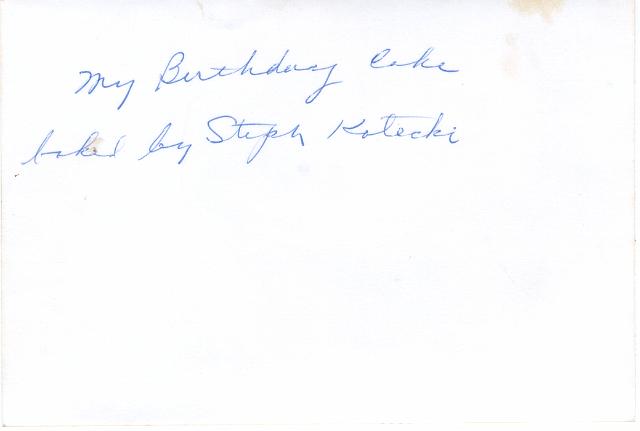 My Birthday Cake
baked by Steph Kotecki